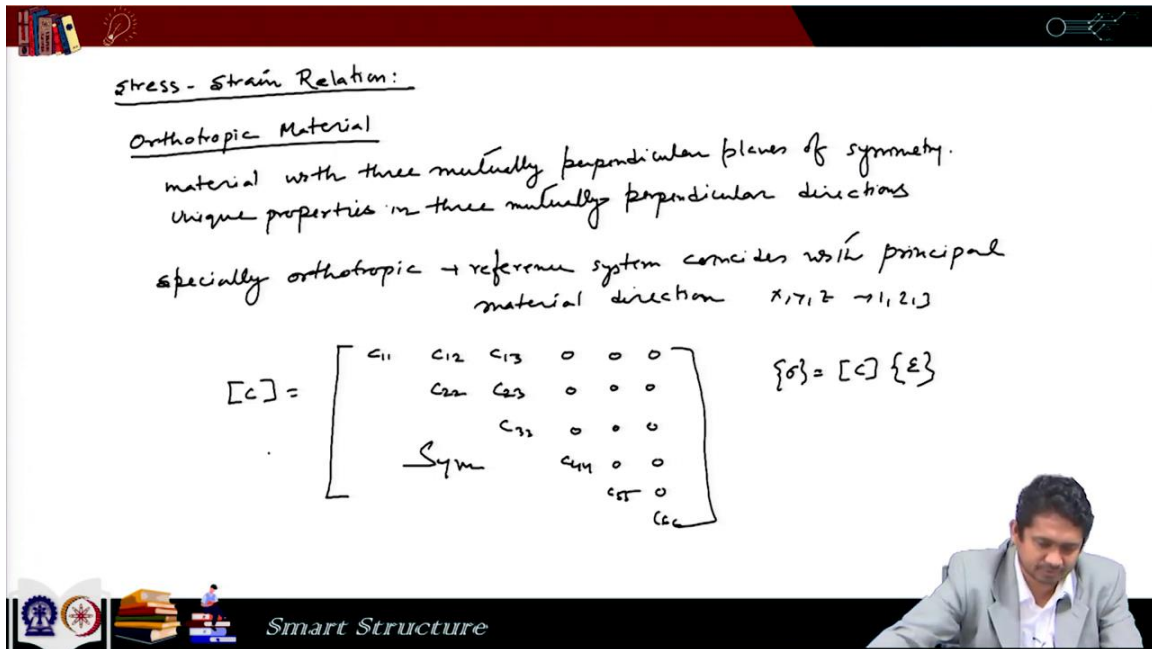 Stress - Strain Relation:
Orthotropic Material
material with three mutually perpendicular planes of symmetry.
Unique properties in three mutually perpendicular directions
specially orthotropic → reference system coincides with principal
material direction x, y, z → 1, 2, 3
[C] = [ C11 C12 C13 0 0 0
C22 C23 0 0 0
C33 0 0 0
Sym C44 0 0
C55 0
C66 ]
{σ} = [C] {ε}
Smart Structure